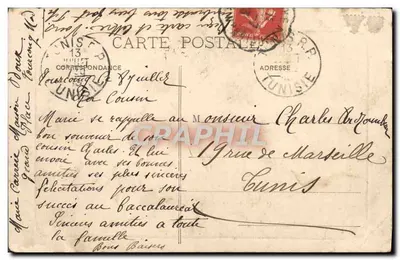 CARTE POSTALE
CORRESPONDANCE
ADRESSE
TUNIS R.P.
13
TUNISIE
R.P.
TUNISIE
Tourcoing 8 Juillet
Cousin
Marie se rappelle au
bon souvenir de son
cousin Charles. Et lui
envoie avec ses bonnes
amitiés ses plus sincères
félicitations pour son
succès au baccalauréat
Sincères amitiés à toute
la famille
Bons Baisers
Monsieur Charles
19 rue de Marseille
Tunis
Marie Maison
Grand Place Tourcoing
CPAPHIL